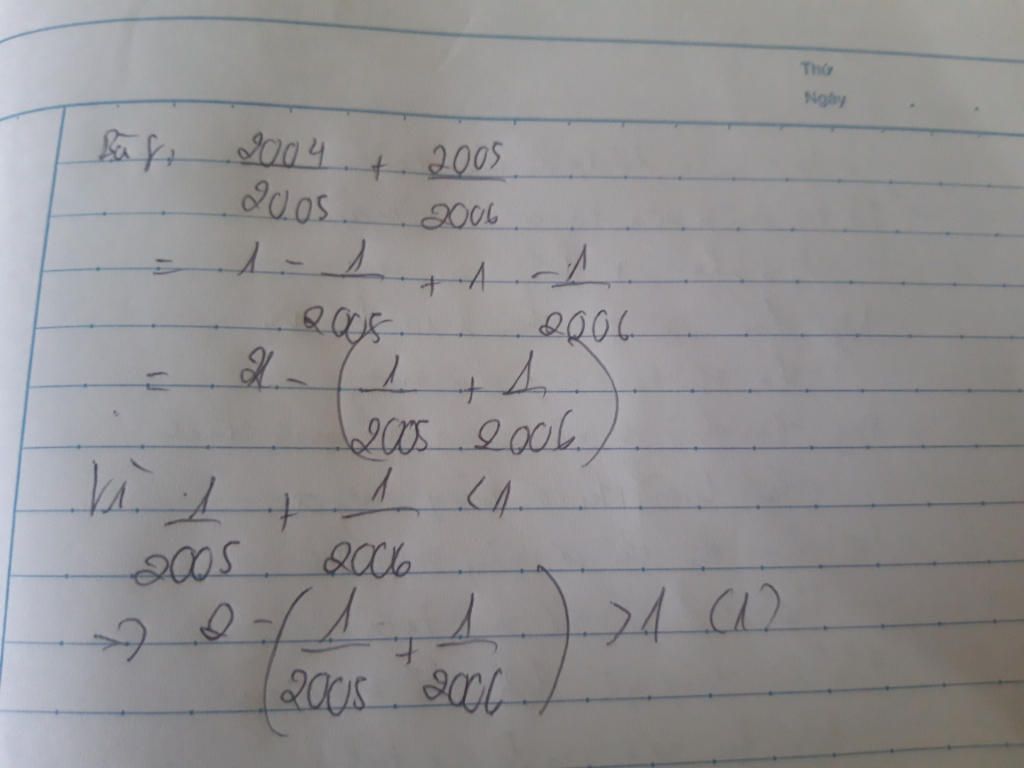 Thứ
Ngày
Bài 5, 2004/2005 + 2005/2006
= 1 - 1/2005 + 1 - 1/2006
= 2 - (1/2005 + 1/2006)
Vì 1/2005 + 1/2006 < 1
=> 2 - (1/2005 + 1/2006) > 1 (1)